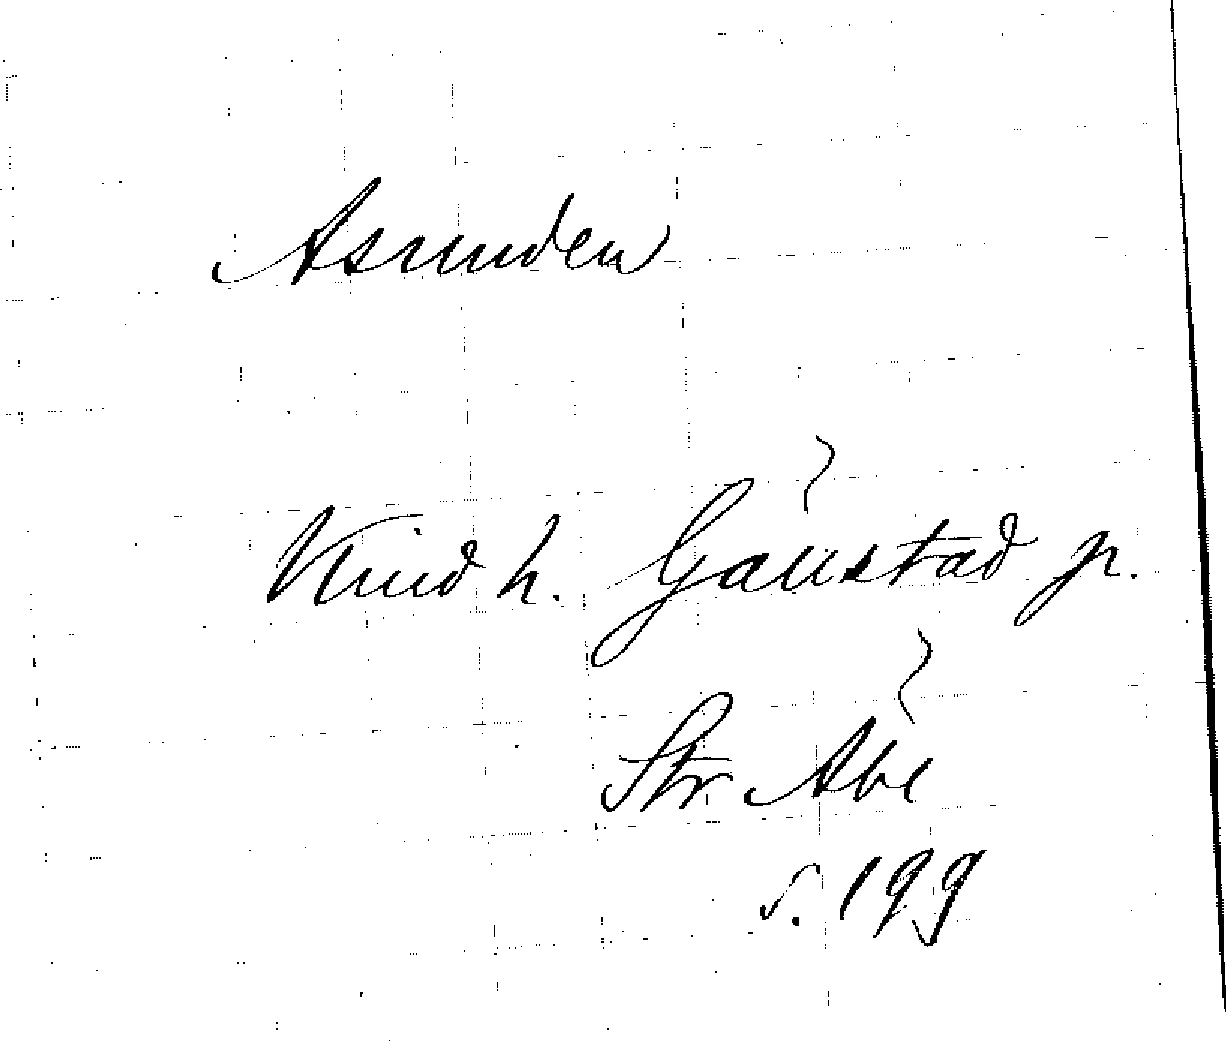 Asunden
Knud K. Gaustad jr.
Str. Abe
s. 199